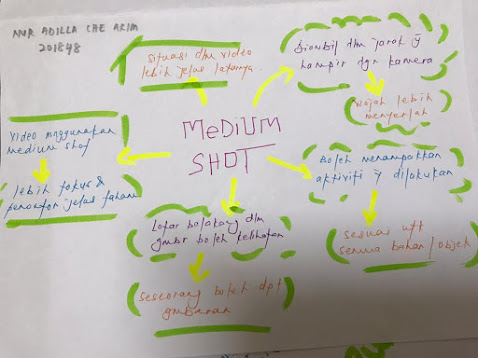 NUR ADILLA CHE ARIM
201848
Situasi dlm video
lebih jelas latarnya.
Diambil dlm jarak yg
hampir dgn kamera
Wajah lebih
menyerlah
MEDIUM
SHOT
Video menggunakan
medium shot
lebih fokus &
penonton jelas faham
Boleh menampakkan
aktiviti yg dilakukan
sesuai utk
semua bahan / objek
Latar belakang dlm
gmbr boleh kelihatan
seseorang boleh dpt
gmbaran